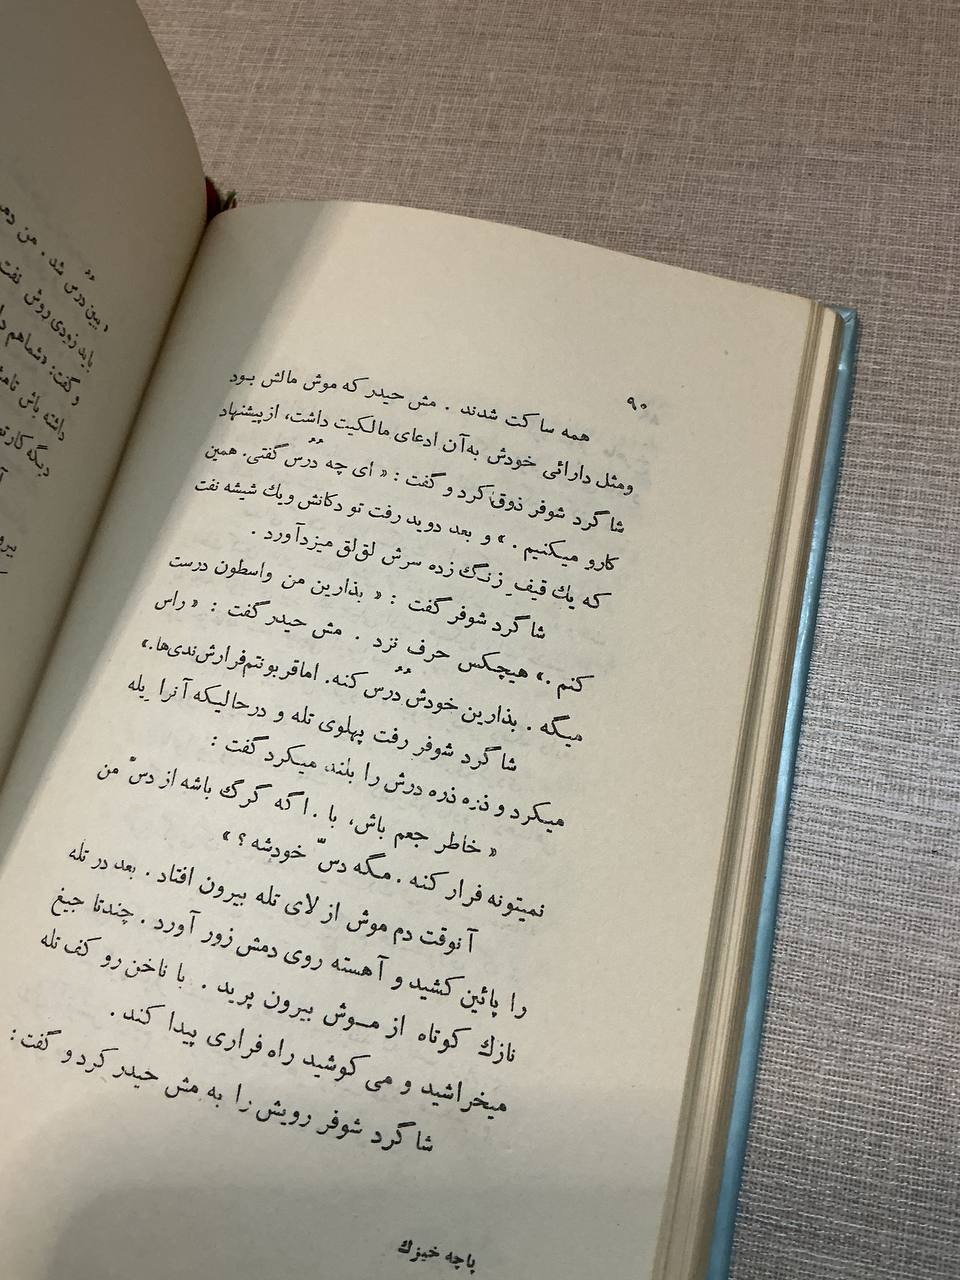 ۹۰
همه ساکت شدند . مش حیدر که موش مالش بود
ومثل دارائی خودش به‌آن ادعای مالکیت داشت، ازپیشنهاد
شاگرد شوفر ذوق کرد و گفت : « ای چه دُرُس گفتی. همین
کارو میکنیم . » و بعد دوید رفت تو دکانش ویك شیشه نفت
که یك قیفِ زنگ زده سرش لق‌لق میزدآورد .
شاگرد شوفر گفت : « بذارین من واسطون درست
کنم .» هیچکس حرف نزد . مش حیدر گفت : « راس
میگه . بذارین خودش دُرُس کنه. اماقربونتم‌فرارش‌ندی‌ها.»
شاگرد شوفر رفت پهلوی تله و درحالیکه آنرا یِله
میکرد و ذره ذره درش را بلند میکرد گفت :
« خاطر جعم باش، با . اگه گرگ باشه از دسّ من
نمیتونه فرار کنه . مگه دسّ خودشه ؟ »
آنوقت دم موش از لای تله بیرون افتاد . بعد در تله
را پائین کشید و آهسته روی دمش زور آورد . چندتا جیغ
نازك کوتاه از موش بیرون پرید . با ناخن رو کف تله
میخراشید و می کوشید راه فراری پیدا کند .
شاگرد شوفر رویش را به مش حیدر کرد و گفت :
پاچه خیزك
بین دُرُس شد . من
باید زودی روش نفت
و گفت: «شماهم
داشته باش
دیگه